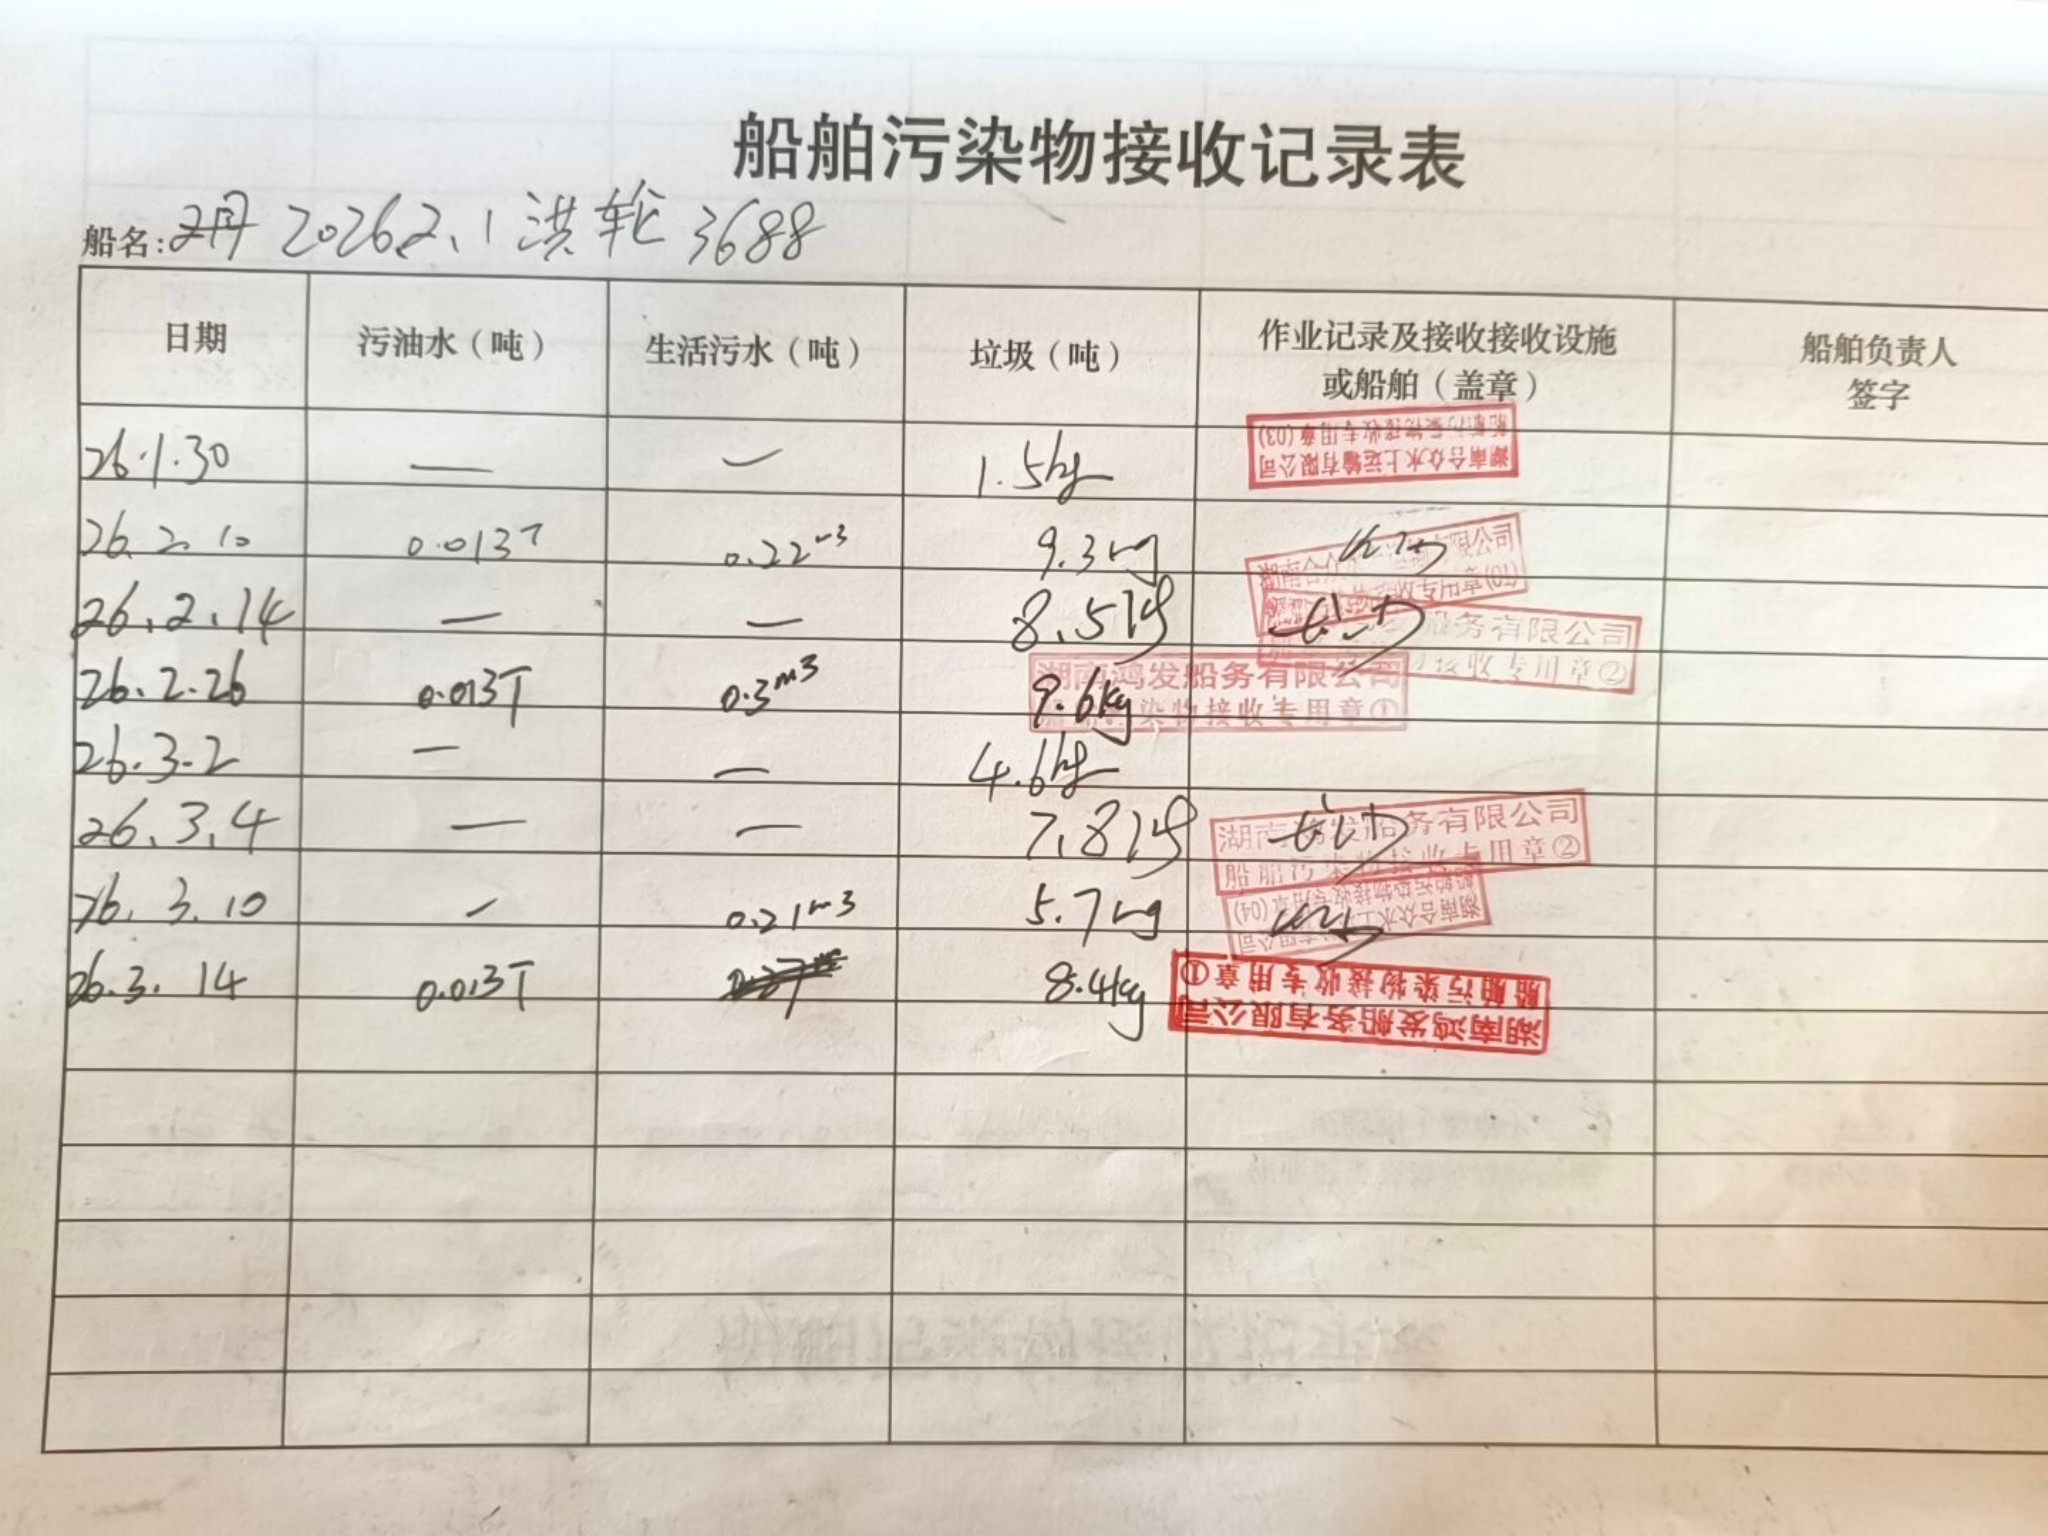 船舶污染物接收记录表
船名: 2026.2.1 洪轮 3688
日期 污油水（吨） 生活污水（吨） 垃圾（吨） 作业记录及接收接收设施或船舶（盖章） 船舶负责人签字
26.1.30 — — 1.5kg
湖南合众水上运输有限公司
船舶污染物接收专用章(03)
26.2.10 0.013T 0.22m3 9.3kg
26.2.14 — — 8.5kg
船务有限公司
接收专用章②
26.2.26 0.013T 0.3m3 9.6kg
湖南鸿发船务有限公司
污染物接收专用章①
26.3.2 — — 4.6kg
26.3.4 — — 7.8kg
湖南鸿发船务有限公司
船舶污染物接收专用章②
26.3.10 — 0.21m3 5.7kg
湖南合众水上
船舶污染物接收专用章(04)
26.3.14 0.013T 8.4kg
湖南鸿发船务有限公司
船舶污染物接收专用章①